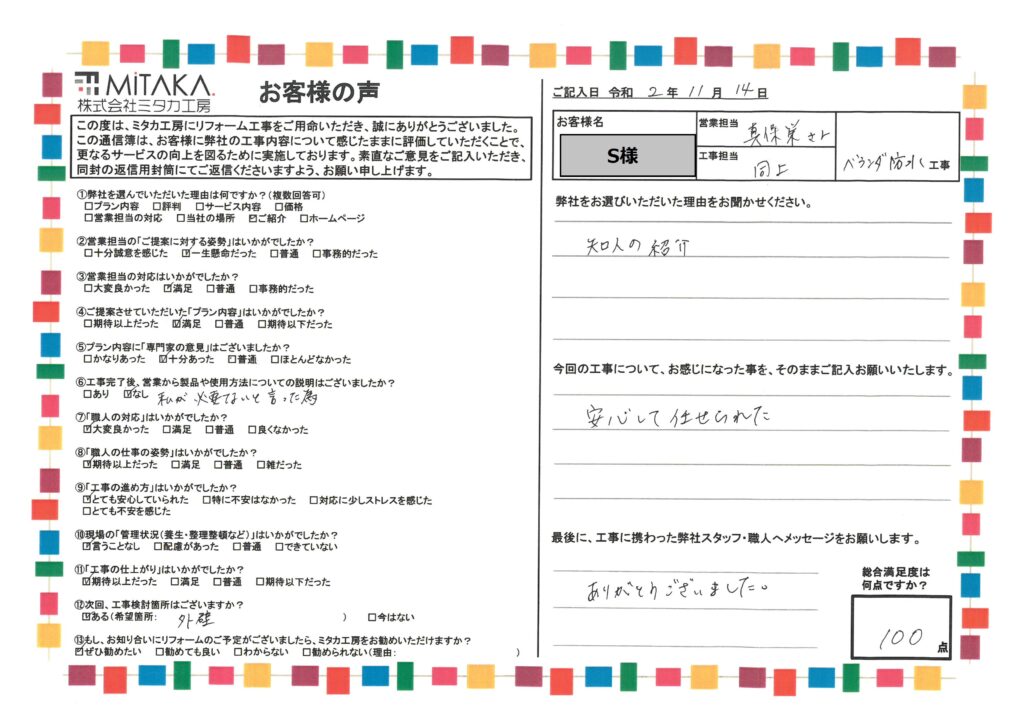 MiTAKA.
株式会社ミタカ工房
お客様の声
この度は、ミタカ工房にリフォーム工事をご用命いただき、誠にありがとうございました。
この通信簿は、お客様に弊社の工事内容について感じたままに評価していただくことで、
更なるサービスの向上を図るために実施しております。素直なご意見をご記入いただき、
同封の返信用封筒にてご返信くださいますよう、お願い申し上げます。
①弊社を選んでいただいた理由は何ですか?(複数回答可)
□プラン内容 □評判 □サービス内容 □価格
□営業担当の対応 □当社の場所 ☑ご紹介 □ホームページ
②営業担当の「ご提案に対する姿勢」はいかがでしたか?
□十分誠意を感じた ☑一生懸命だった □普通 □事務的だった
③営業担当の対応はいかがでしたか?
□大変良かった ☑満足 □普通 □事務的だった
④ご提案させていただいた「プラン内容」はいかがでしたか?
□期待以上だった ☑満足 □普通 □期待以下だった
⑤プラン内容に「専門家の意見」はございましたか?
□かなりあった ☑十分あった □普通 □ほとんどなかった
⑥工事完了後、営業から製品や使用方法についての説明はございましたか?
□あり ☑なし 私が必要ないと言った為
⑦「職人の対応」はいかがでしたか?
☑大変良かった □満足 □普通 □良くなかった
⑧「職人の仕事の姿勢」はいかがでしたか?
☑期待以上だった □満足 □普通 □雑だった
⑨「工事の進め方」はいかがでしたか?
☑とても安心していられた □特に不安はなかった □対応に少しストレスを感じた
□とても不安を感じた
⑩現場の「管理状況(養生・整理整頓など)」はいかがでしたか?
☑言うことなし □配慮があった □普通 □できていない
⑪「工事の仕上がり」はいかがでしたか?
☑期待以上だった □満足 □普通 □期待以下だった
⑫次回、工事検討箇所はございますか?
☑ある(希望箇所: 外壁 ) □今はない
⑬もし、お知り合いにリフォームのご予定がございましたら、ミタカ工房をお勧めいただけますか?
☑ぜひ勧めたい □勧めても良い □わからない □勧められない(理由: )
ご記入日 令和 2 年 11 月 14 日
お客様名
S様
営業担当 真保栄さん
工事担当 同上
ベランダ防水 工事
弊社をお選びいただいた理由をお聞かせください。
知人の紹介
今回の工事について、お感じになった事を、そのままご記入お願いいたします。
安心して任せられた
最後に、工事に携わった弊社スタッフ・職人へメッセージをお願いします。
ありがとうございました。
総合満足度は
何点ですか?
100 点